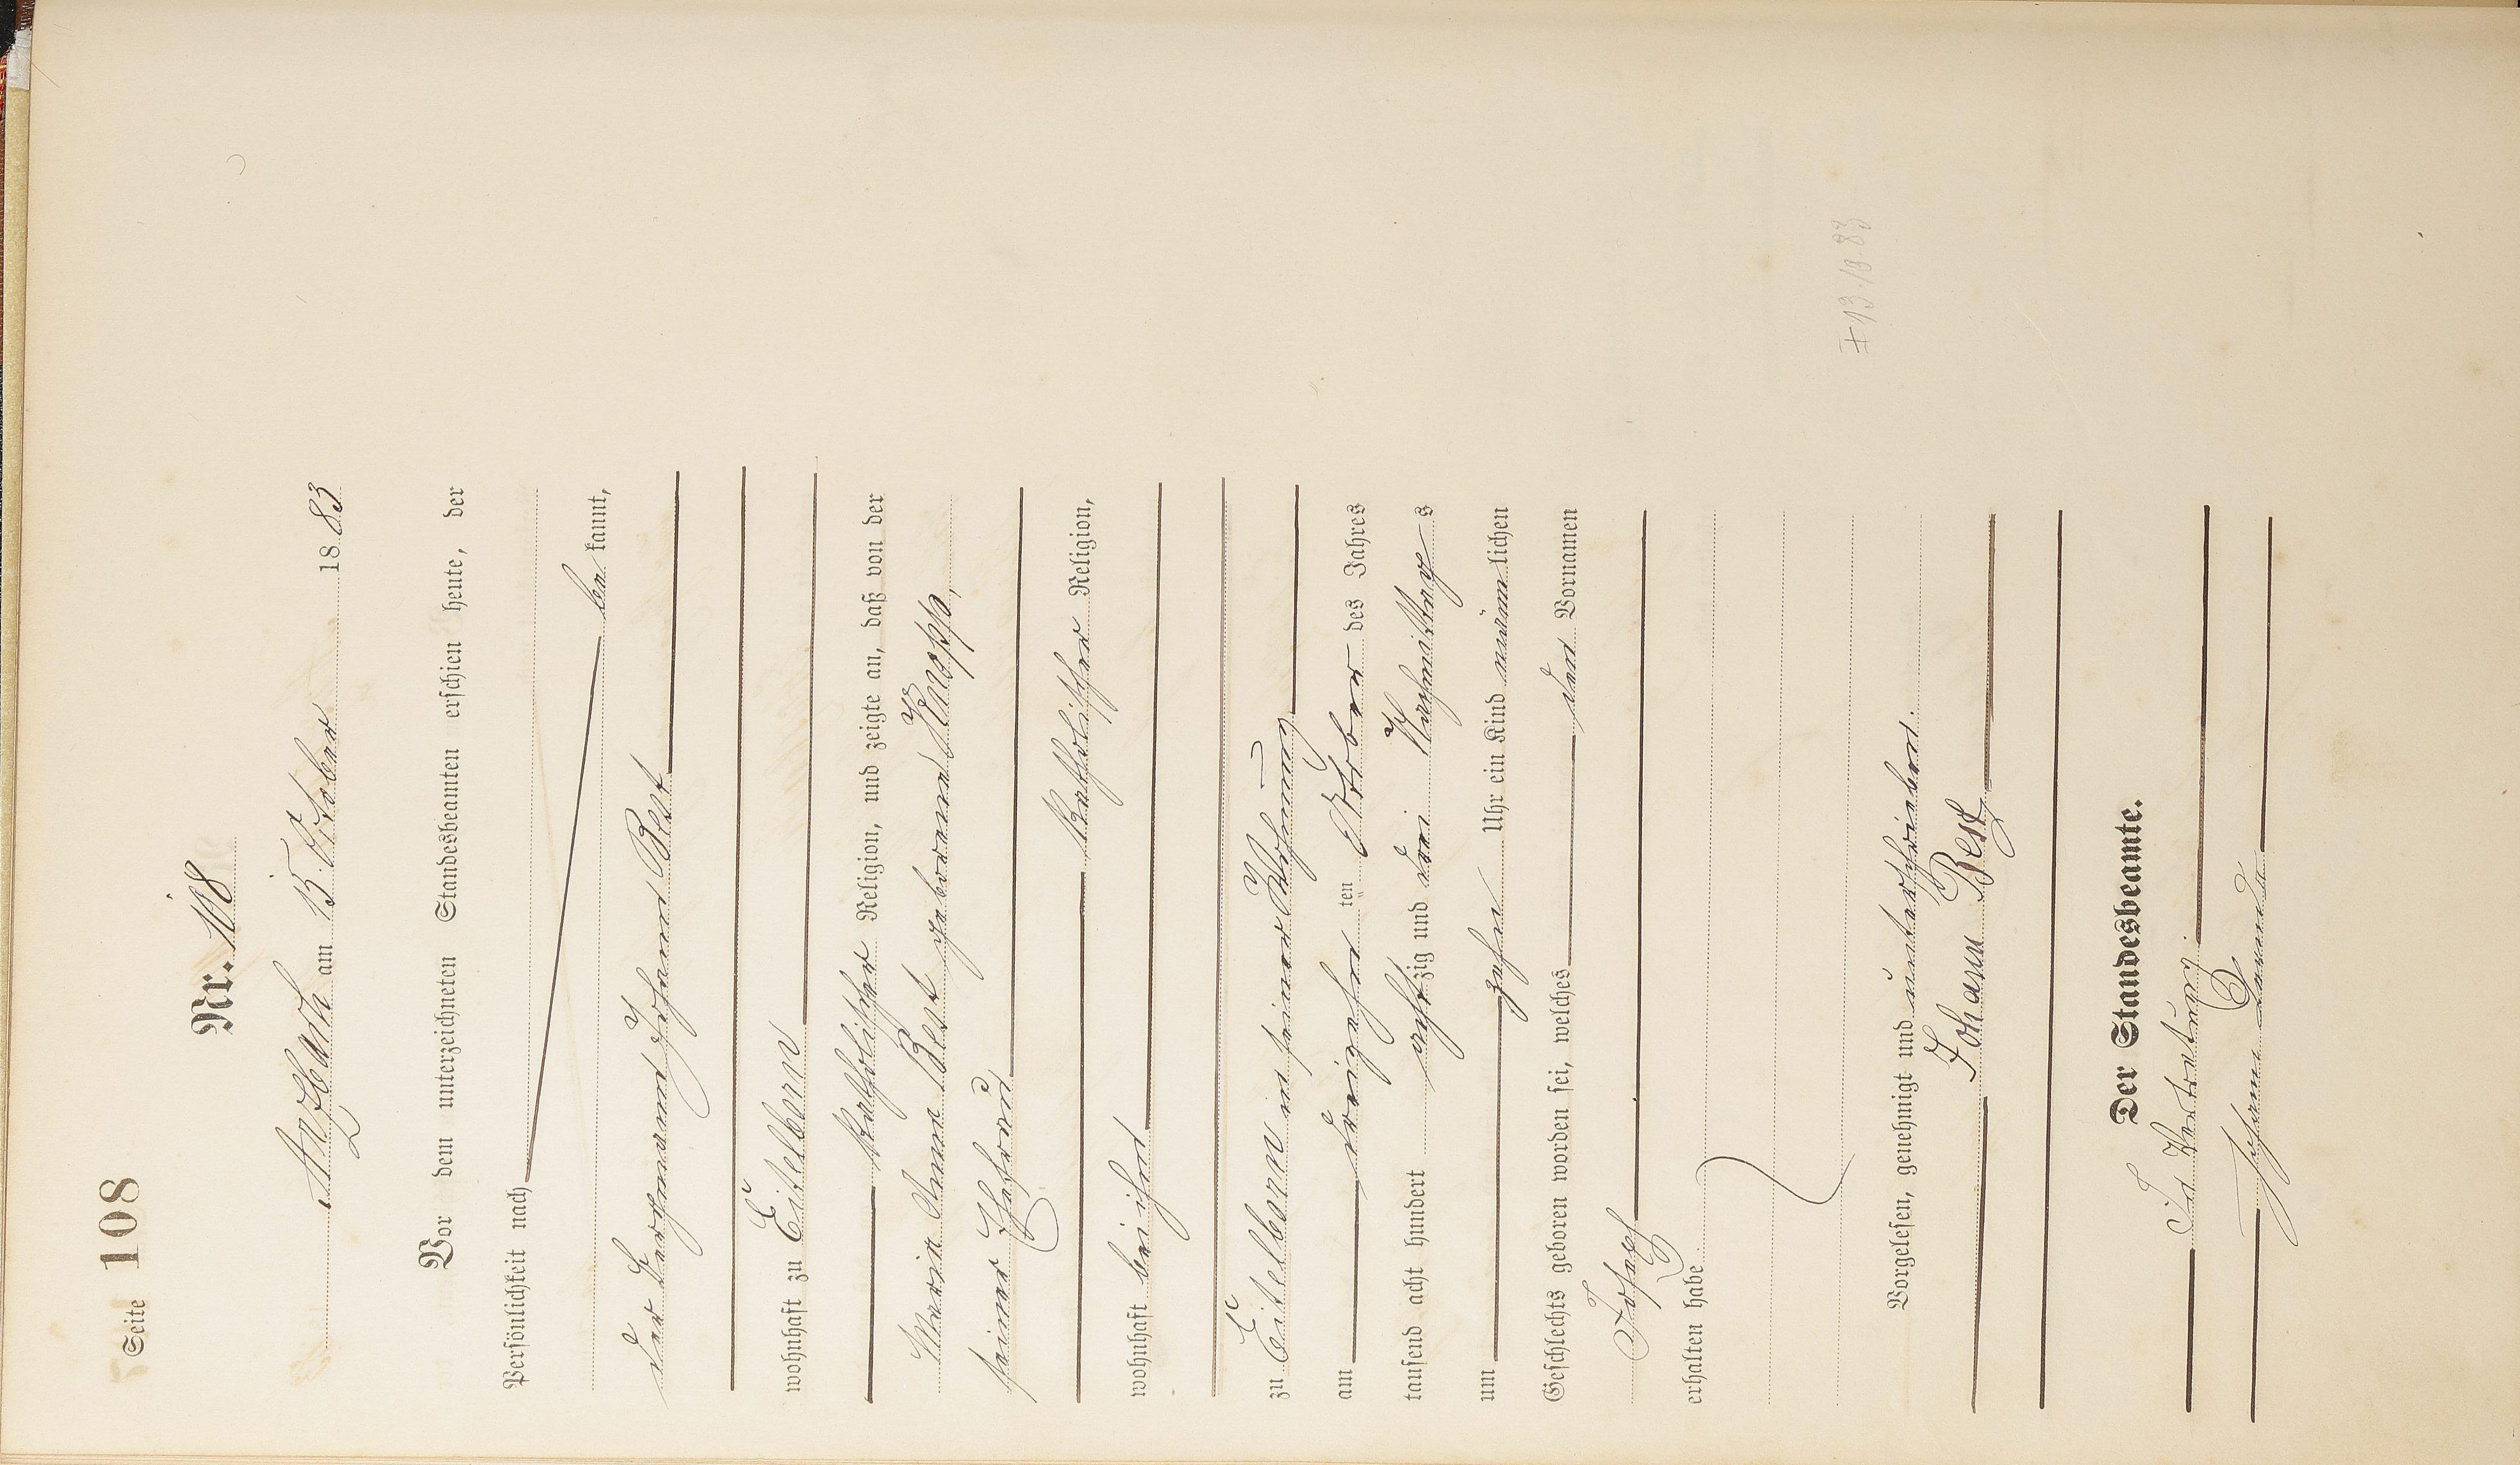 Seite 108
Nr. 108
Arzbach am 15. Oktober 1883
Vor dem unterzeichneten Standesbeamten erschien heute, der
Persönlichkeit nach
be kannt,
der Bergmann Johann Best
wohnhaft zu Eitelborn
katholischer Religion, und zeigte an, daß von der
Maria Anna Best geborenen Knopp,
seiner Ehefrau
katholischer Religion,
wohnhaft bei ihm
zu Eitelborn in seiner Wohnung
am dreizehn ten Oktober des Jahres
tausend acht hundert acht zig und drei Nachmittag s
um zehn Uhr ein Kind männ lichen
Geschlechts geboren worden sei, welches den Vornamen
Joseph
erhalten habe
Vorgelesen, genehmigt und unterschrieben.
Johann Best
Der Standesbeamte.
In Vertretung
Johann
13.10.83